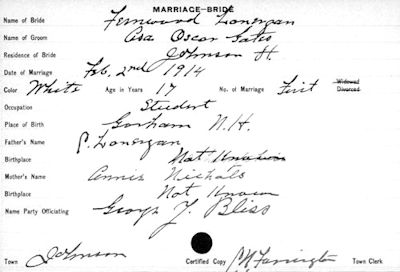 MARRIAGE—BRIDE
Name of Bride Fernwood Lonergan
Name of Groom Asa Oscar Gates
Residence of Bride Johnson Vt.
Date of Marriage Feb. 2nd 1914
Color White Age in Years 17 No. of Marriage First Widowed
Divorced
Occupation Student
Place of Birth Gorham N.H.
Father's Name P. Lonergan
Birthplace Not Known
Mother's Name Annie Nichols
Birthplace Not Known
Name Party Officiating George J. Bliss
Town Johnson Certified Copy Farrington Town Clerk